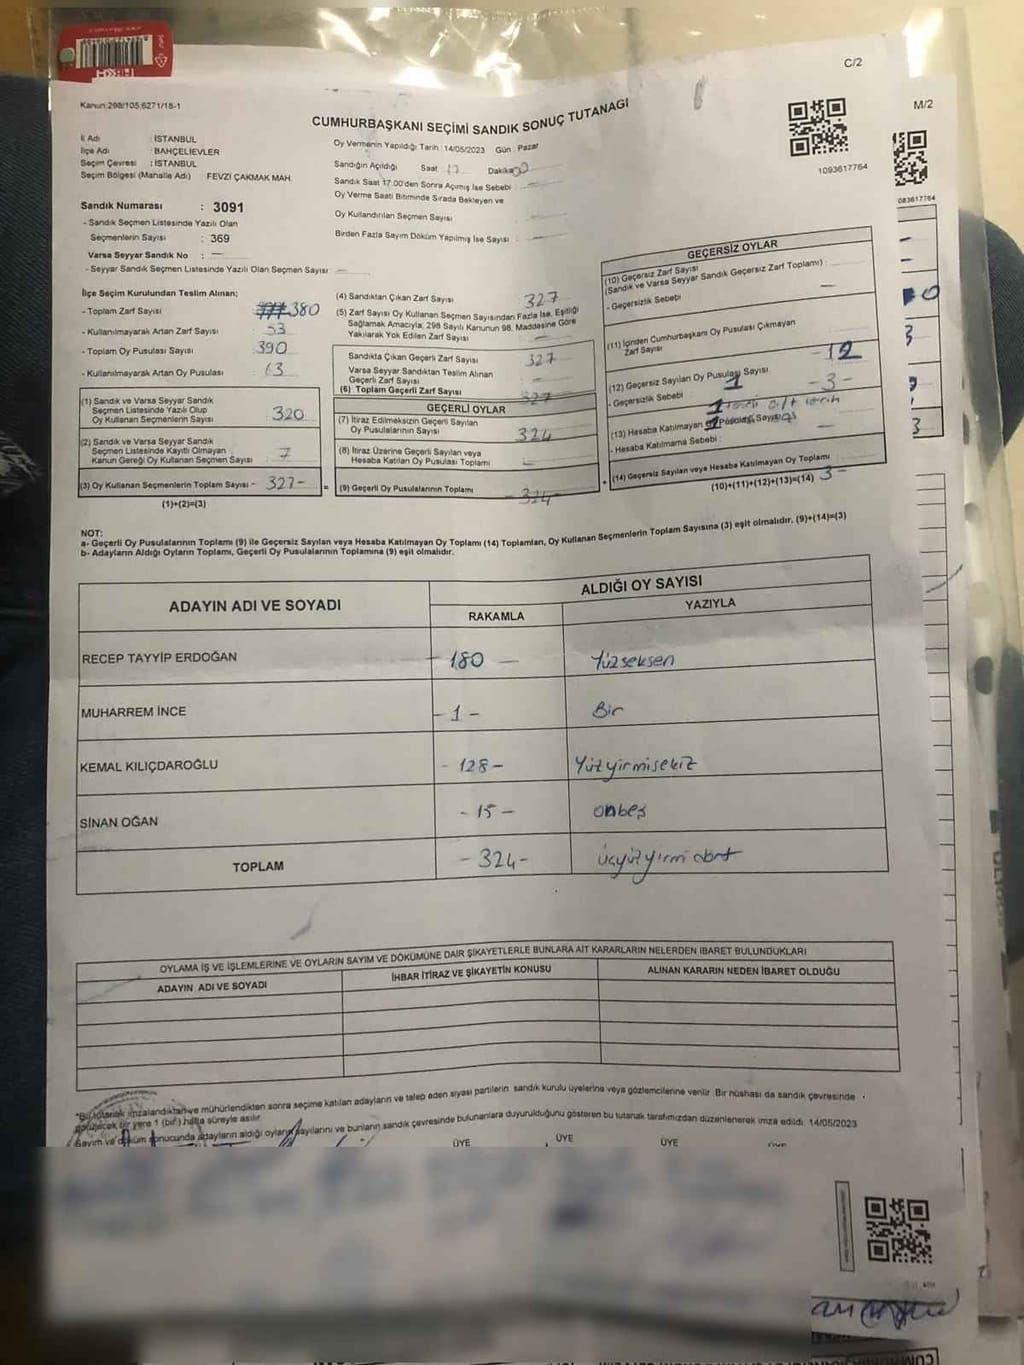 C/2
M/2
Kanun:298/105;6271/18-1
CUMHURBAŞKANI SEÇİMİ SANDIK SONUÇ TUTANAĞI
1093617764
İl Adı : İSTANBUL
İlçe Adı : BAHÇELİEVLER
Seçim Çevresi : İSTANBUL
Seçim Bölgesi (Mahalle Adı) FEVZİ ÇAKMAK MAH.
Sandık Numarası : 3091
- Sandık Seçmen Listesinde Yazılı Olan
Seçmenlerin Sayısı : 369
Varsa Seyyar Sandık No : —
- Seyyar Sandık Seçmen Listesinde Yazılı Olan Seçmen Sayısı : —
Oy Vermenin Yapıldığı Tarih : 14/05/2023 Gün : Pazar
Sandığın Açıldığı Saat 17 Dakika
Sandık Saat 17.00'den Sonra Açımış İse Sebebi : —
Oy Verme Saati Bitiminde Sırada Bekleyen ve
Oy Kullandırılan Seçmen Sayısı —
Birden Fazla Sayım Döküm Yapılmış İse Sayısı : —
İlçe Seçim Kurulundan Teslim Alınan;
- Toplam Zarf Sayısı : 380
- Kullanılmayarak Artan Zarf Sayısı : 53
- Toplam Oy Pusulası Sayısı : 390
- Kullanılmayarak Artan Oy Pusulası : 63
(1) Sandık ve Varsa Seyyar Sandık
Seçmen Listesinde Yazılı Olup
Oy Kullanan Seçmenlerin Sayısı 320
(2) Sandık ve Varsa Seyyar Sandık
Seçmen Listesinde Kayıtlı Olmayan
Kanun Gereği Oy Kullanan Seçmen Sayısı 7
(3) Oy Kullanan Seçmenlerin Toplam Sayısı - 327-
(1)+(2)=(3)
(4) Sandıktan Çıkan Zarf Sayısı 327
(5) Zarf Sayısı Oy Kullanan Seçmen Sayısından Fazla İse, Eşitliği
Sağlamak Amacıyla, 298 Sayılı Kanunun 98. Maddesine Göre
Yakılarak Yok Edilen Zarf Sayısı —
Sandıkta Çıkan Geçerli Zarf Sayısı 327
Varsa Seyyar Sandıktan Teslim Alınan
Geçerli Zarf Sayısı —
(6) Toplam Geçerli Zarf Sayısı 327
GEÇERLİ OYLAR
(7) İtiraz Edilmeksizin Geçerli Sayılan
Oy Pusulalarının Sayısı 324
(8) İtiraz Üzerine Geçerli Sayılan veya
Hesaba Katılan Oy Pusulası Toplamı —
(9) Geçerli Oy Pusulalarının Toplamı - 324-
GEÇERSİZ OYLAR
(10) Geçersiz Zarf Sayısı
(Sandık ve Varsa Seyyar Sandık Geçersiz Zarf Toplamı) :
- Geçersizlik Sebebi —
(11) İçinden Cumhurbaşkanı Oy Pusulası Çıkmayan
Zarf Sayısı
(12) Geçersiz Sayılan Oy Pusulası Sayısı -3-
- Geçersizlik Sebebi :
(13) Hesaba Katılmayan Oy Pusulası Sayısı
- Hesaba Katılmama Sebebi :
(14) Geçersiz Sayılan veya Hesaba Katılmayan Oy Toplamı 3-
(10)+(11)+(12)+(13)=(14)
NOT:
a- Geçerli Oy Pusulalarının Toplamı (9) ile Geçersiz Sayılan veya Hesaba Katılmayan Oy Toplamı (14) Toplamları, Oy Kullanan Seçmenlerin Toplam Sayısına (3) eşit olmalıdır. (9)+(14)=(3)
b- Adayların Aldığı Oyların Toplamı, Geçerli Oy Pusulalarının Toplamına (9) eşit olmalıdır.
ADAYIN ADI VE SOYADI
ALDIĞI OY SAYISI
RAKAMLA YAZIYLA
RECEP TAYYİP ERDOĞAN - 180 — Yüzseksen
MUHARREM İNCE - 1 - Bir
KEMAL KILIÇDAROĞLU - 128 - Yüzyirmisekiz
SİNAN OĞAN - 15 - onbeş
TOPLAM - 324 - üçyüzyirmi dört
OYLAMA İŞ VE İŞLEMLERİNE VE OYLARIN SAYIM VE DÖKÜMÜNE DAİR ŞİKAYETLERLE BUNLARA AİT KARARLARIN NELERDEN İBARET BULUNDUKLARI
ADAYIN ADI VE SOYADI İHBAR İTİRAZ VE ŞİKAYETİN KONUSU ALINAN KARARIN NEDEN İBARET OLDUĞU
*Bu tutanak imzalandıktan ve mühürlendikten sonra seçime katılan adayların ve talep eden siyasi partilerin sandık kurulu üyelerine veya gözlemcilerine verilir. Bir nüshası da sandık çevresinde
görülecek bir yere 1 (bir) hafta süreyle asılır.
Sayım ve döküm sonucunda adayların aldığı oyların sayılarını ve bunların sandık çevresinde bulunanlara duyurulduğunu gösteren bu tutanak tarafımızdan düzenlenerek imza edildi. 14/05/2023
ÜYE ÜYE ÜYE